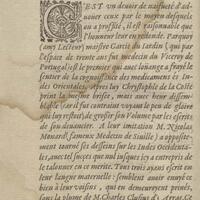 C'EST un devoir de naifueté d'ad-
uouer ceux par le moyen desquels
on a profité, il est raisonnable que
l'honneur leur en redonde. Parquoy
(amy Lecteur) maistre Garcie du Iardin (qui par
l'espace de trente ans fut medecin du Viceroy de
Portugal) est le premier qui auec louange a frayé le
sentier de la cognoissance des medicamens és In-
des Orientales. Apres luy Christophle de la Coste
print la mesme brisee, mais auec heur dissem-
blable (car il fut contraint voyant le peu de gloire
qui luy restoit, de grossir son Volume par les escrits
de son deuancier. A leur imitation M. Nicolas
Monard, fameux Medecin de Seuille, a appro-
tourné ses desseins sur les Indes Occidenta-
les, auec tel succés que nul iusques icy a entrepris de
le talonner en ce mestier. Tous trois ayans escrit en
leur langue maternelle: sembloient auoir enuyé ce
bien à leur voisins, qui en demeuroyent priués,
sous la plume de M. Charles Clusius d'Arras. Ce